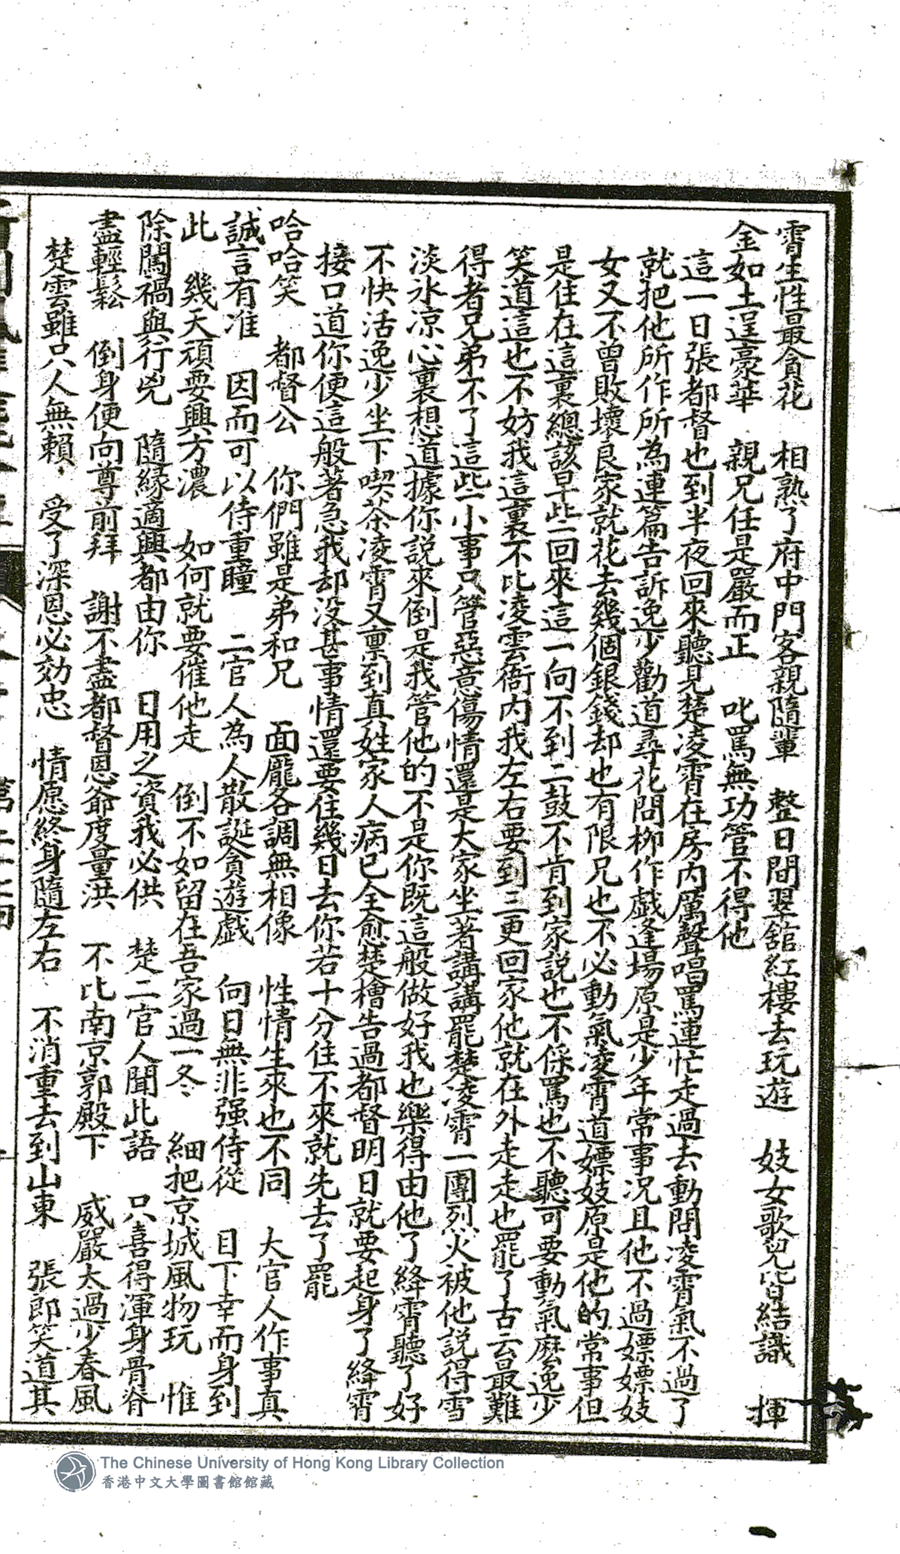 霄生性最貪花　相熟了府中門客親隨輩　整日間翠舘紅樓去玩遊　妓女歌兒皆結識　揮
金如土逞豪華　親兄任是嚴而正　叱罵無功管不得他
這一日張都督也到半夜回來聽見楚凌霄在房內厲聲唱罵連忙走過去動問凌霄氣不過了
就把他所作所為連篇告訴逸少勸道尋花問柳作戲逢場原是少年常事况且他不過嫖嫖妓
女又不曾敗壞良家就花去幾個銀錢却也有限兄也不必動氣凌霄道嫖妓原是他的常事但
是住在這裏總該早些回來這一向不到二鼓不肯到家説也不倸罵也不聽可要動氣麽逸少
笑道這也不妨我這裏不比凌雲衙內我左右要到三更回家他就在外走走也罷了古云最難
得者兄弟不了這些小事只管惡意傷情還是大家坐著講講罷楚凌霄一團烈火被他説得雪
淡氷凉心裏想道據你說來倒是我管他的不是你既這般做好我也樂得由他了絳霄聽了好
不快活逸少坐下喫茶凌霄又禀到真姓家人病已全愈楚檜告過都督明日就要起身了絳霄
接口道你便這般著急我却没甚事情還要住幾日去你若十分住不來就先去了罷
哈哈笑　都督公　你們雖是弟和兄　面龐各調無相像　性情生來也不同　大官人作事真
誠言有准　因而可以侍重瞳　二官人為人散誕貪遊戲　向日無非强侍從　目下幸而身到
此　幾天頑耍興方濃　如何就要催他走　倒不如留在吾家過一冬　細把京城風物玩　惟
除闖禍與行兇　隨緣適興都由你　日用之資我必供　楚二官人聞此語　只喜得渾身骨脊
盡輕鬆　倒身便向尊前拜　謝不盡都督恩爺度量洪　不比南京郭殿下　威嚴太過少春風
楚雲雖只人無賴　受了深恩必効忠　情愿終身隨左右　不消重去到山東　張郎笑道其
The Chinese University of Hong Kong Library Collection
香港中文大學圖書館館藏